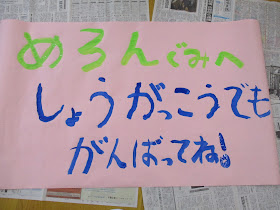 めろんぐみへ
しょうがっこうでも
がんばってね!